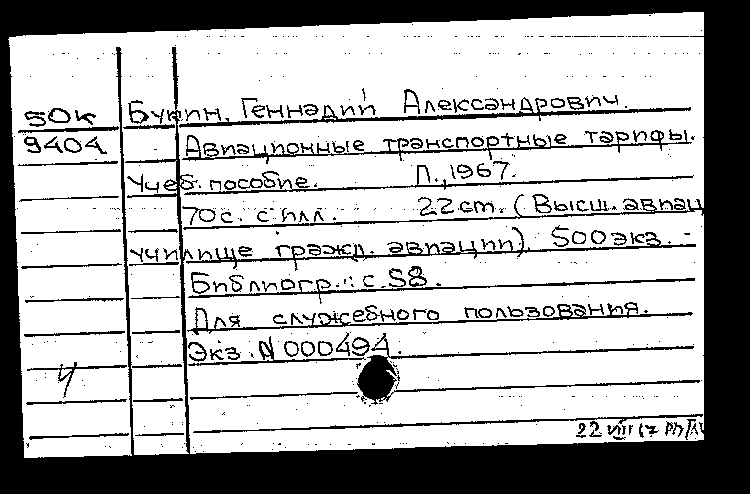 50к Букин, Геннадий Александрович.
9404 Авиационные транспортные тарифы.
Учеб. пособие. Л., 1967.
70 с. с илл. 22 см. (Высш. авиац
училище гражд. авиации). 500 экз. -
Библиогр.: с. 58.
Для служебного пользования.
Экз. N 000494.
22 VIII 67